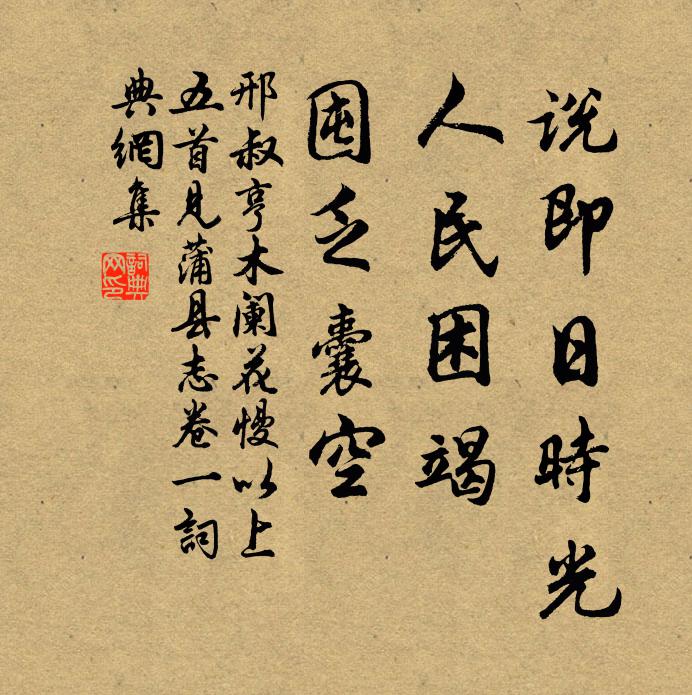 说即日時光
人民困竭
囤乏囊空
邢叔亨木阑花慢以上
五首見蒲县志卷一詞
典網集
詞典
网印